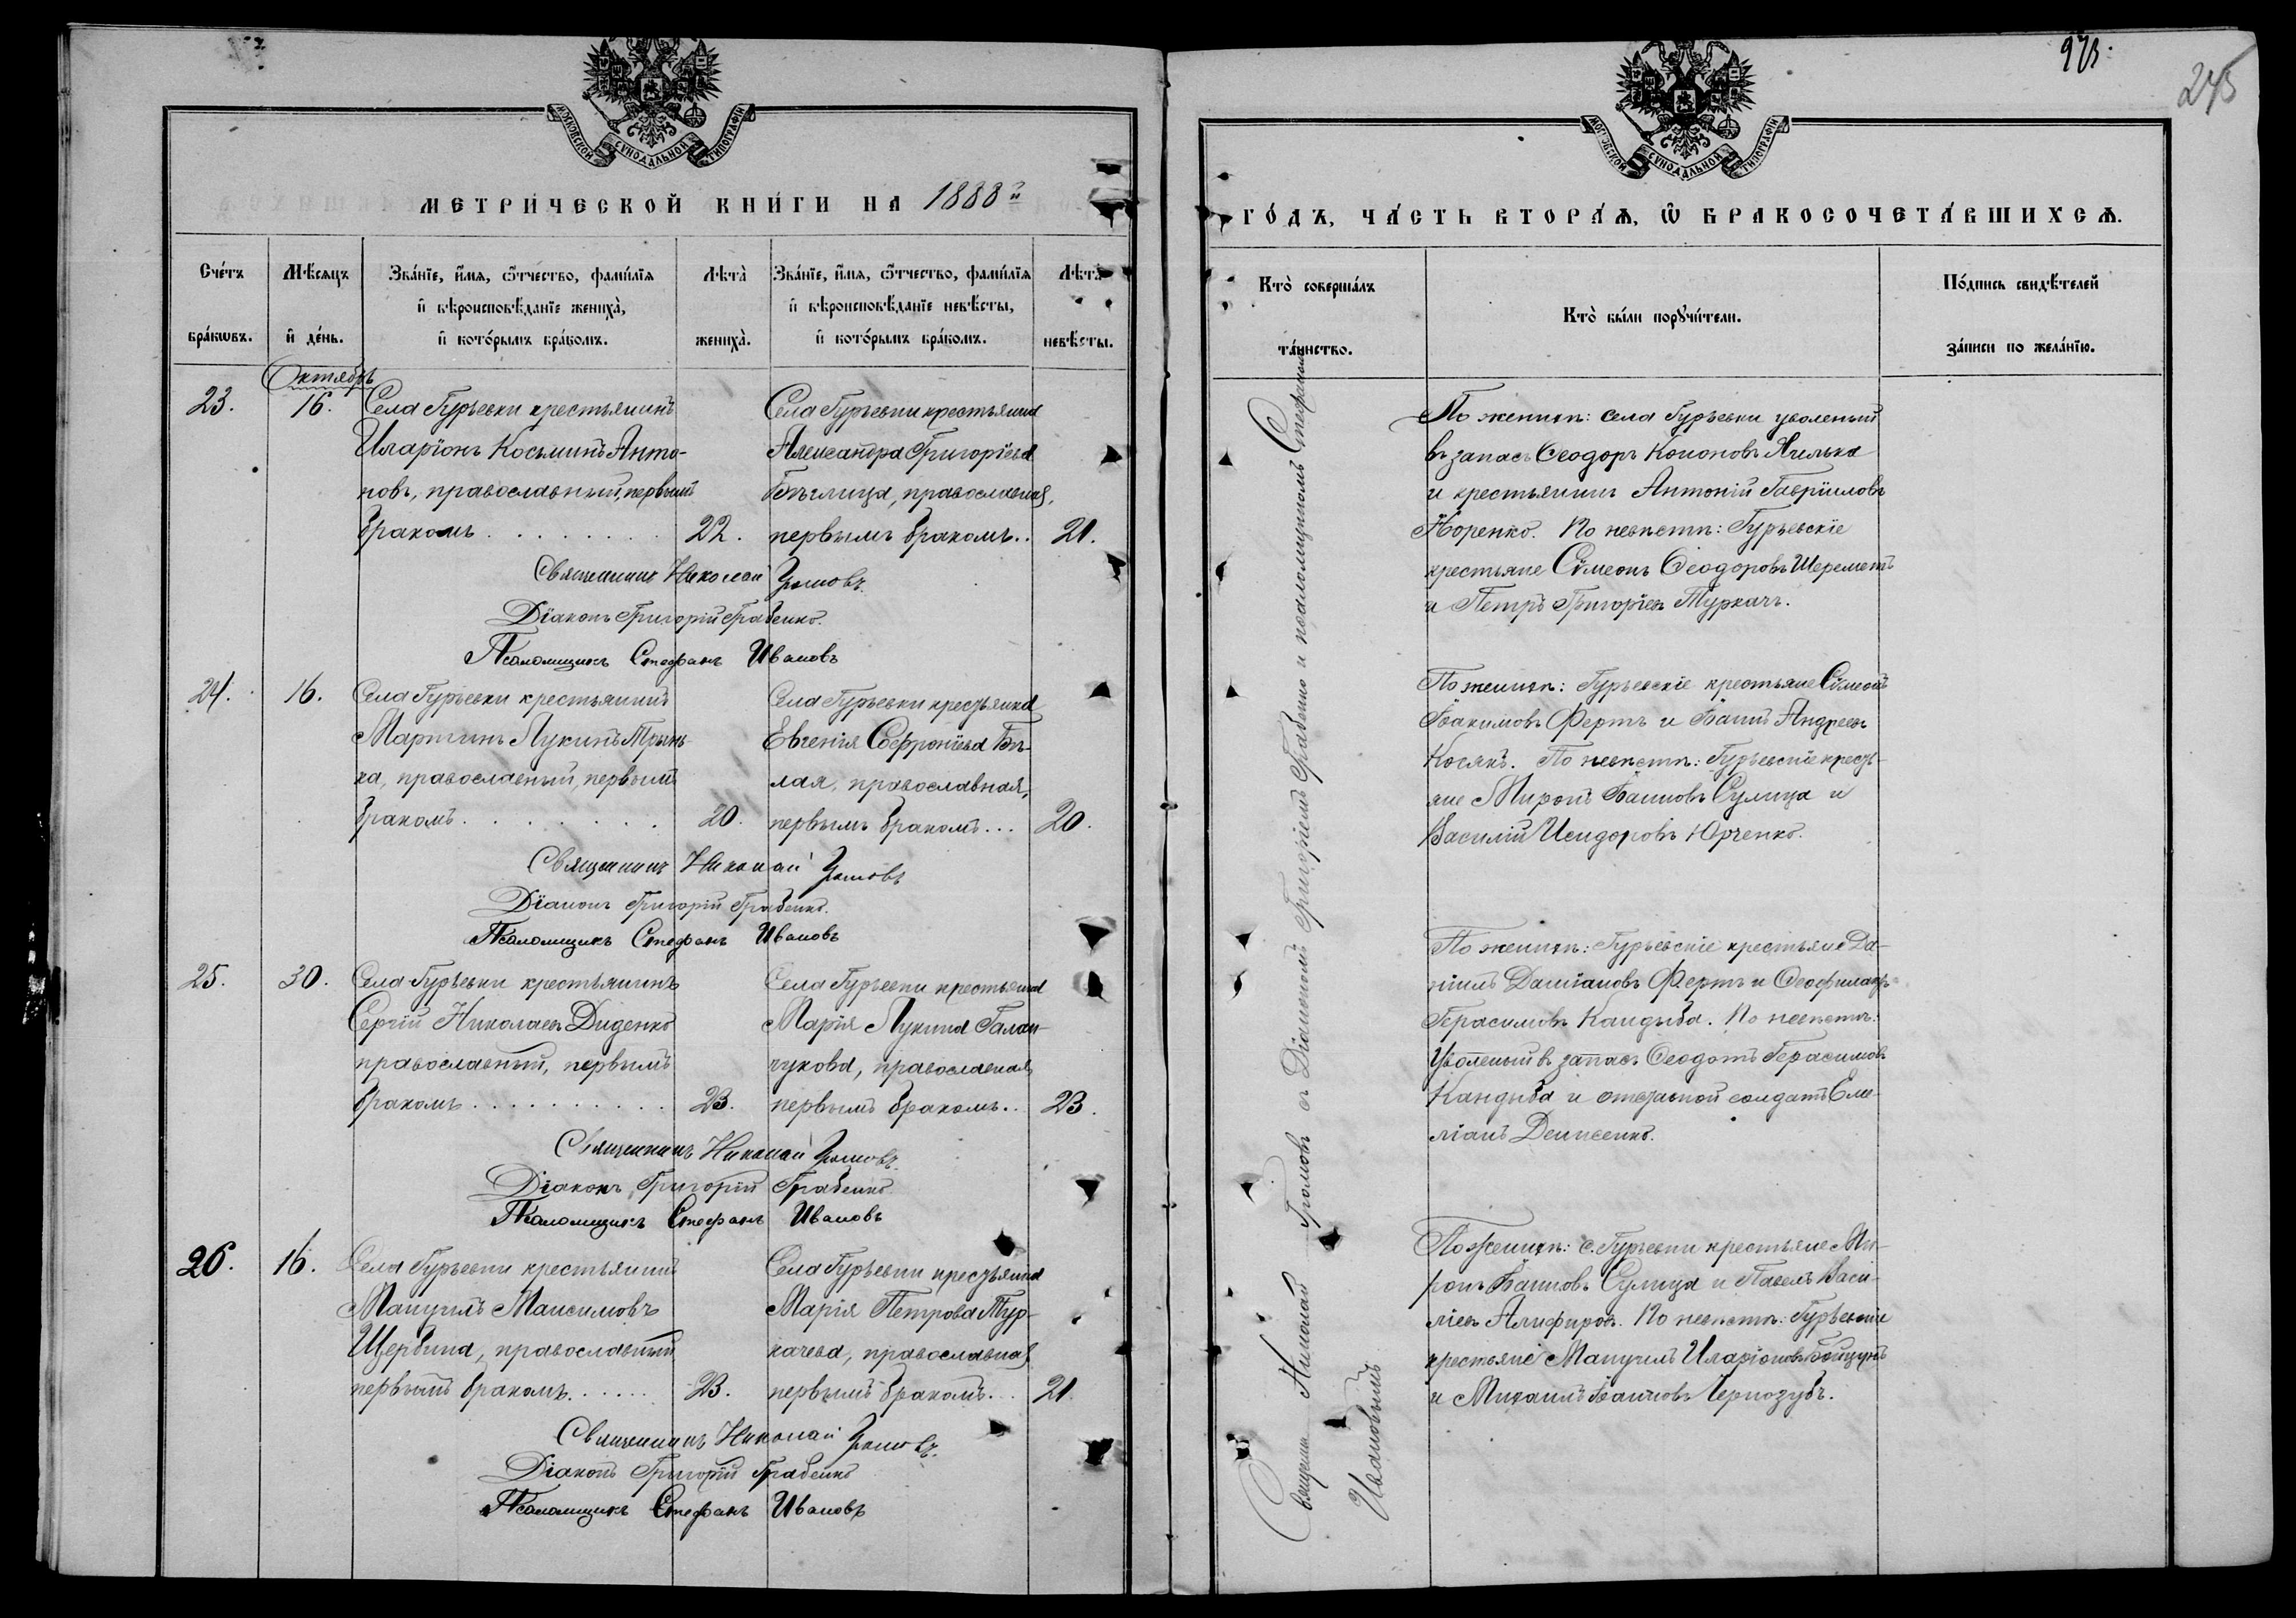 МОСКОВСКОЙ СѴНОДАЛЬНОЙ ТИПОГРАФІИ
МЕТРИЧЕСКОЙ КНИГИ НА 1888й
Счетъ браковъ.
Мѣсяцъ и день.
Званіе, имя, отчество, фамилія и вѣроисповѣданіе жениха, и которымъ бракомъ.
Лѣта жениха.
Званіе, имя, отчество, фамилія и вѣроисповѣданіе невѣсты, и которымъ бракомъ.
Лѣта невѣсты.
Октябрь
23. 16.
Села Гурьевки крестьянинъ
Иларіонъ Косьминъ Анто-
новъ, православный, первымъ
бракомъ 22.
Села Гурьевки крестьянка
Александра Григоріева
Бѣглица, православная,
первымъ бракомъ.. 21.
Священникъ Николай
Діаконъ Григорій Грабенко.
Псаломщикъ Стефанъ Ивановъ
24. 16.
Села Гурьевки крестьянинъ
Мартинъ Лукинъ Тринь-
ка, православный, первымъ
бракомъ 20.
Села Гурьевки крестьянка
Евгенія Софроніева Бѣ-
лая, православная,
первымъ бракомъ... 20.
Священникъ Николай
Діаконъ Григорій Грабенко.
Псаломщикъ Стефанъ Ивановъ
25. 30.
Села Гурьевки крестьянинъ
Сергій Николаевъ Диденко
православный, первымъ
бракомъ 23.
Села Гурьевки крестьянка
Марія Лукина Галан-
чукова, православная,
первымъ бракомъ.. 23.
Священникъ Николай
Діаконъ Григорій Грабенко
Псаломщикъ Стефанъ Ивановъ
26. 16.
Села Гурьевки крестьянинъ
Мануилъ Максимовъ
Щербина, православный
первымъ бракомъ 23.
Села Гурьевки крестьянка
Марія Петрова Тур-
качева, православная
первымъ бракомъ... 21.
Священникъ Николай
Діаконъ Григорій Грабенко
Псаломщикъ Стефанъ Ивановъ
245
МОСКОВСКОЙ СѴНОДАЛЬНОЙ ТИПОГРАФІИ
ГОДЪ, ЧАСТЬ ВТОРАЯ, Ѡ БРАКОСОЧЕТАВШИХСЯ.
Кто совершалъ таинство.
Кто были поручители.
Подпись свидѣтелей записи по желанію.
Священникъ Николай съ Діакономъ Григоріемъ Грабенко и псаломщикомъ Стефаномъ
Ивановымъ
По женихѣ: села Гурьевки уволеный
въ запасъ Ѳеодоръ Кононовъ
и крестьянинъ Антоній Гавріиловъ
По невѣстѣ: Гурьевскіе
крестьяне Сѵмеонъ Ѳеодоровъ Шереметъ
и Петръ Григоріевъ Туркачъ.
По женихѣ: Гурьевскіе крестьяне Сѵмеонъ
Іоакимовъ Фертъ и Іоаннъ Андреевъ
Косякъ. По невѣстѣ: Гурьевскіе кресть-
яне Миронъ Іоанновъ Сулица и
Василій Исидоровъ Юрченко.
По женихѣ: Гурьевскіе крестьяне Да-
ніилъ Даміановъ Фертъ и Ѳеофилактъ
Герасимовъ Кандыба. По невѣстѣ:
Уволеный въ запасъ Ѳеодотъ Герасимовъ
Кандыба и отставной солдатъ Еме-
ліанъ Денисенко.
По женихѣ: с. Гурьевки крестьяне Ми-
ронъ Іоанновъ Сулица и Павелъ Васи-
ліевъ Алифировъ. По невѣстѣ: Гурьевскіе
крестьяне Мануилъ Иларіоновъ
и Михаилъ Іоанновъ Чернозубъ.